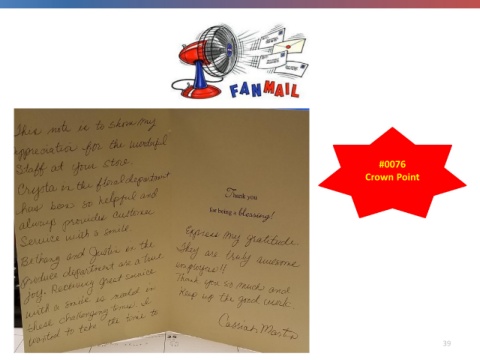 FAN MAIL
This note is to show my
appreciation for the wonderful
Staff at your store.
Crysta in the floral department
has been so helpful and
always provides customer
Service with a smile.
Bethany and Justin in the
produce department are a true
joy. Receiving great service
with a smile is needed in
these challenging times. I
wanted to take the time to
Thank you
for being a blessing!
Express my gratitude.
They are truly awesome
employees!!
Thank you so much and
Keep up the good work.
#0076
Crown Point
39